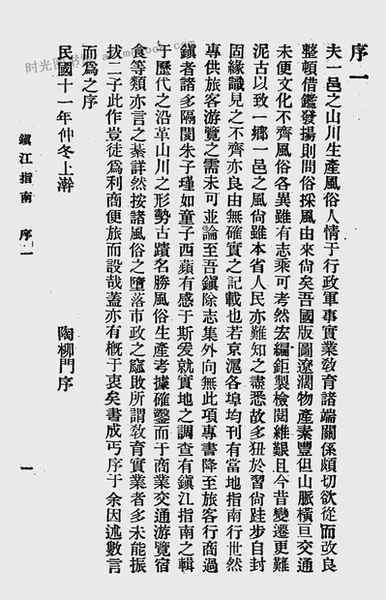 序一
夫一邑之山川生產風俗人情于行政軍事實業教育諸端關係頗切欲從而改良
整頓借鑑發揚則問俗採風由來尙矣吾國版圖遼濶物產豐但山脈橫亘交通
未便文化不齊風俗各異雖有志乘可考然宏編鉅製檢閱維艱且今昔變遷更難
泥古以致一鄉一邑之風尙雖本省人民亦難知之盡悉故多狃於習尙跬步自封
固緣識見之不齊亦良由無確實之記載也若京滬各埠均刊有當地指南行世然
專供旅客游覽之需未可並論至吾鎭除志集外向無此項專書降至旅客行商過
鎭者諸多隔閡朱子瑾如童子西蘋有感于斯爰就實地之調查有鎭江指南之輯
于歷代之沿革山川之形勢古蹟名勝風俗生產考據確鑿而于商業交通游覽宿
食等類亦言之綦詳然按諸風俗之墮落市政之廢敗所謂教育實業者多未能振
拔二子此作豈徒為利商便旅而設哉蓋亦有概于衷矣書成丐序于余因述數言
而為之序
民國十一年仲冬上澣
陶柳門序
鎭江指南 序一
一